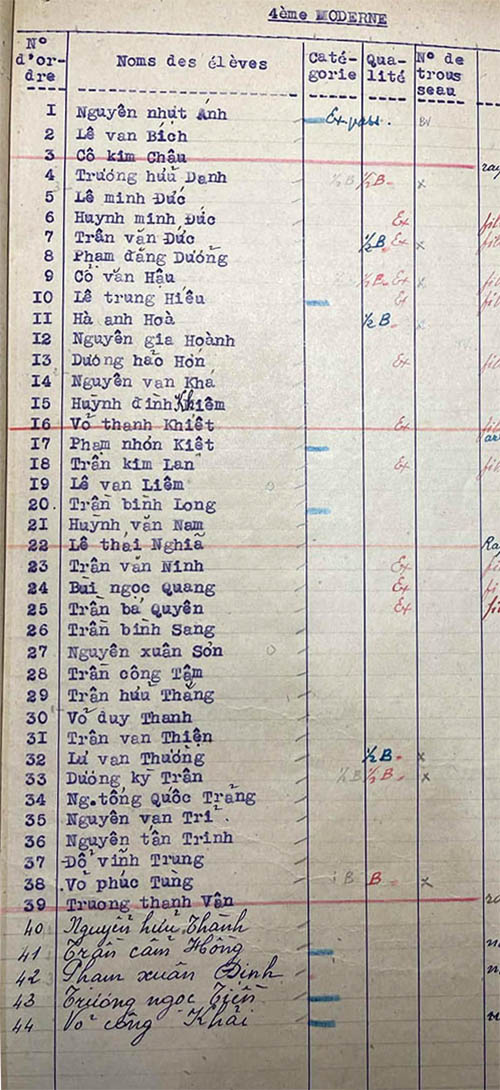 4ème MODERNE
N° d'or-dre Noms des élèves Caté-gorie Qua-lité N° de trous seau
1 Nguyên nhựt Ánh Ex pass.
2 Lê van Bích
3 Cô kim Châu
4 Trương hữu Danh ½ B ½ B. x
5 Lê minh Đức
6 Huỳnh minh Đức Ex
7 Trần văn Đức ½ B. Ex x
8 Phạm đăng Dương
9 Cỏ văn Hậu ½ B. Ex x
10 Lê trung Hiếu Ex
11 Hà anh Hoà ½ B. x
12 Nguyên gia Hoành
13 Dương hảo Hón Ex
14 Nguyên van Khá
15 Huỳnh đình Khiêm
16 Võ thanh Khiết Ex
17 Phạm nhơn Kiệt
18 Trần kim Lan Ex
19 Lê van Liêm
20. Trần bình Long
21 Huỳnh văn Nam
22 Lê thái Nghiã
23 Trần văn Ninh Ex
24 Bùi ngọc Quang Ex
25 Trần bá Quyên Ex
26 Trần bình Sang
27 Nguyên xuân Sơn
28 Trần công Tậm
29 Trần hữu Thắng
30 Võ duy Thanh
31 Trần van Thiện
32 Lư van Thường ½ B. x
33 Dương kỳ Trân ½ B ½ B. x
34 Ng.tông Quốc Trắng
35 Nguyên van Tri
36 Nguyên tân Trinh
37 Đô vinh Trung
38 Võ phúc Tung B B x
39 Truong thanh Vân
40 Nguyễn hữu Thành
41 Trần cẩm Hồng
42 Pham xuân Định
43 Trương ngọc Tiến
44 Võ công Khải